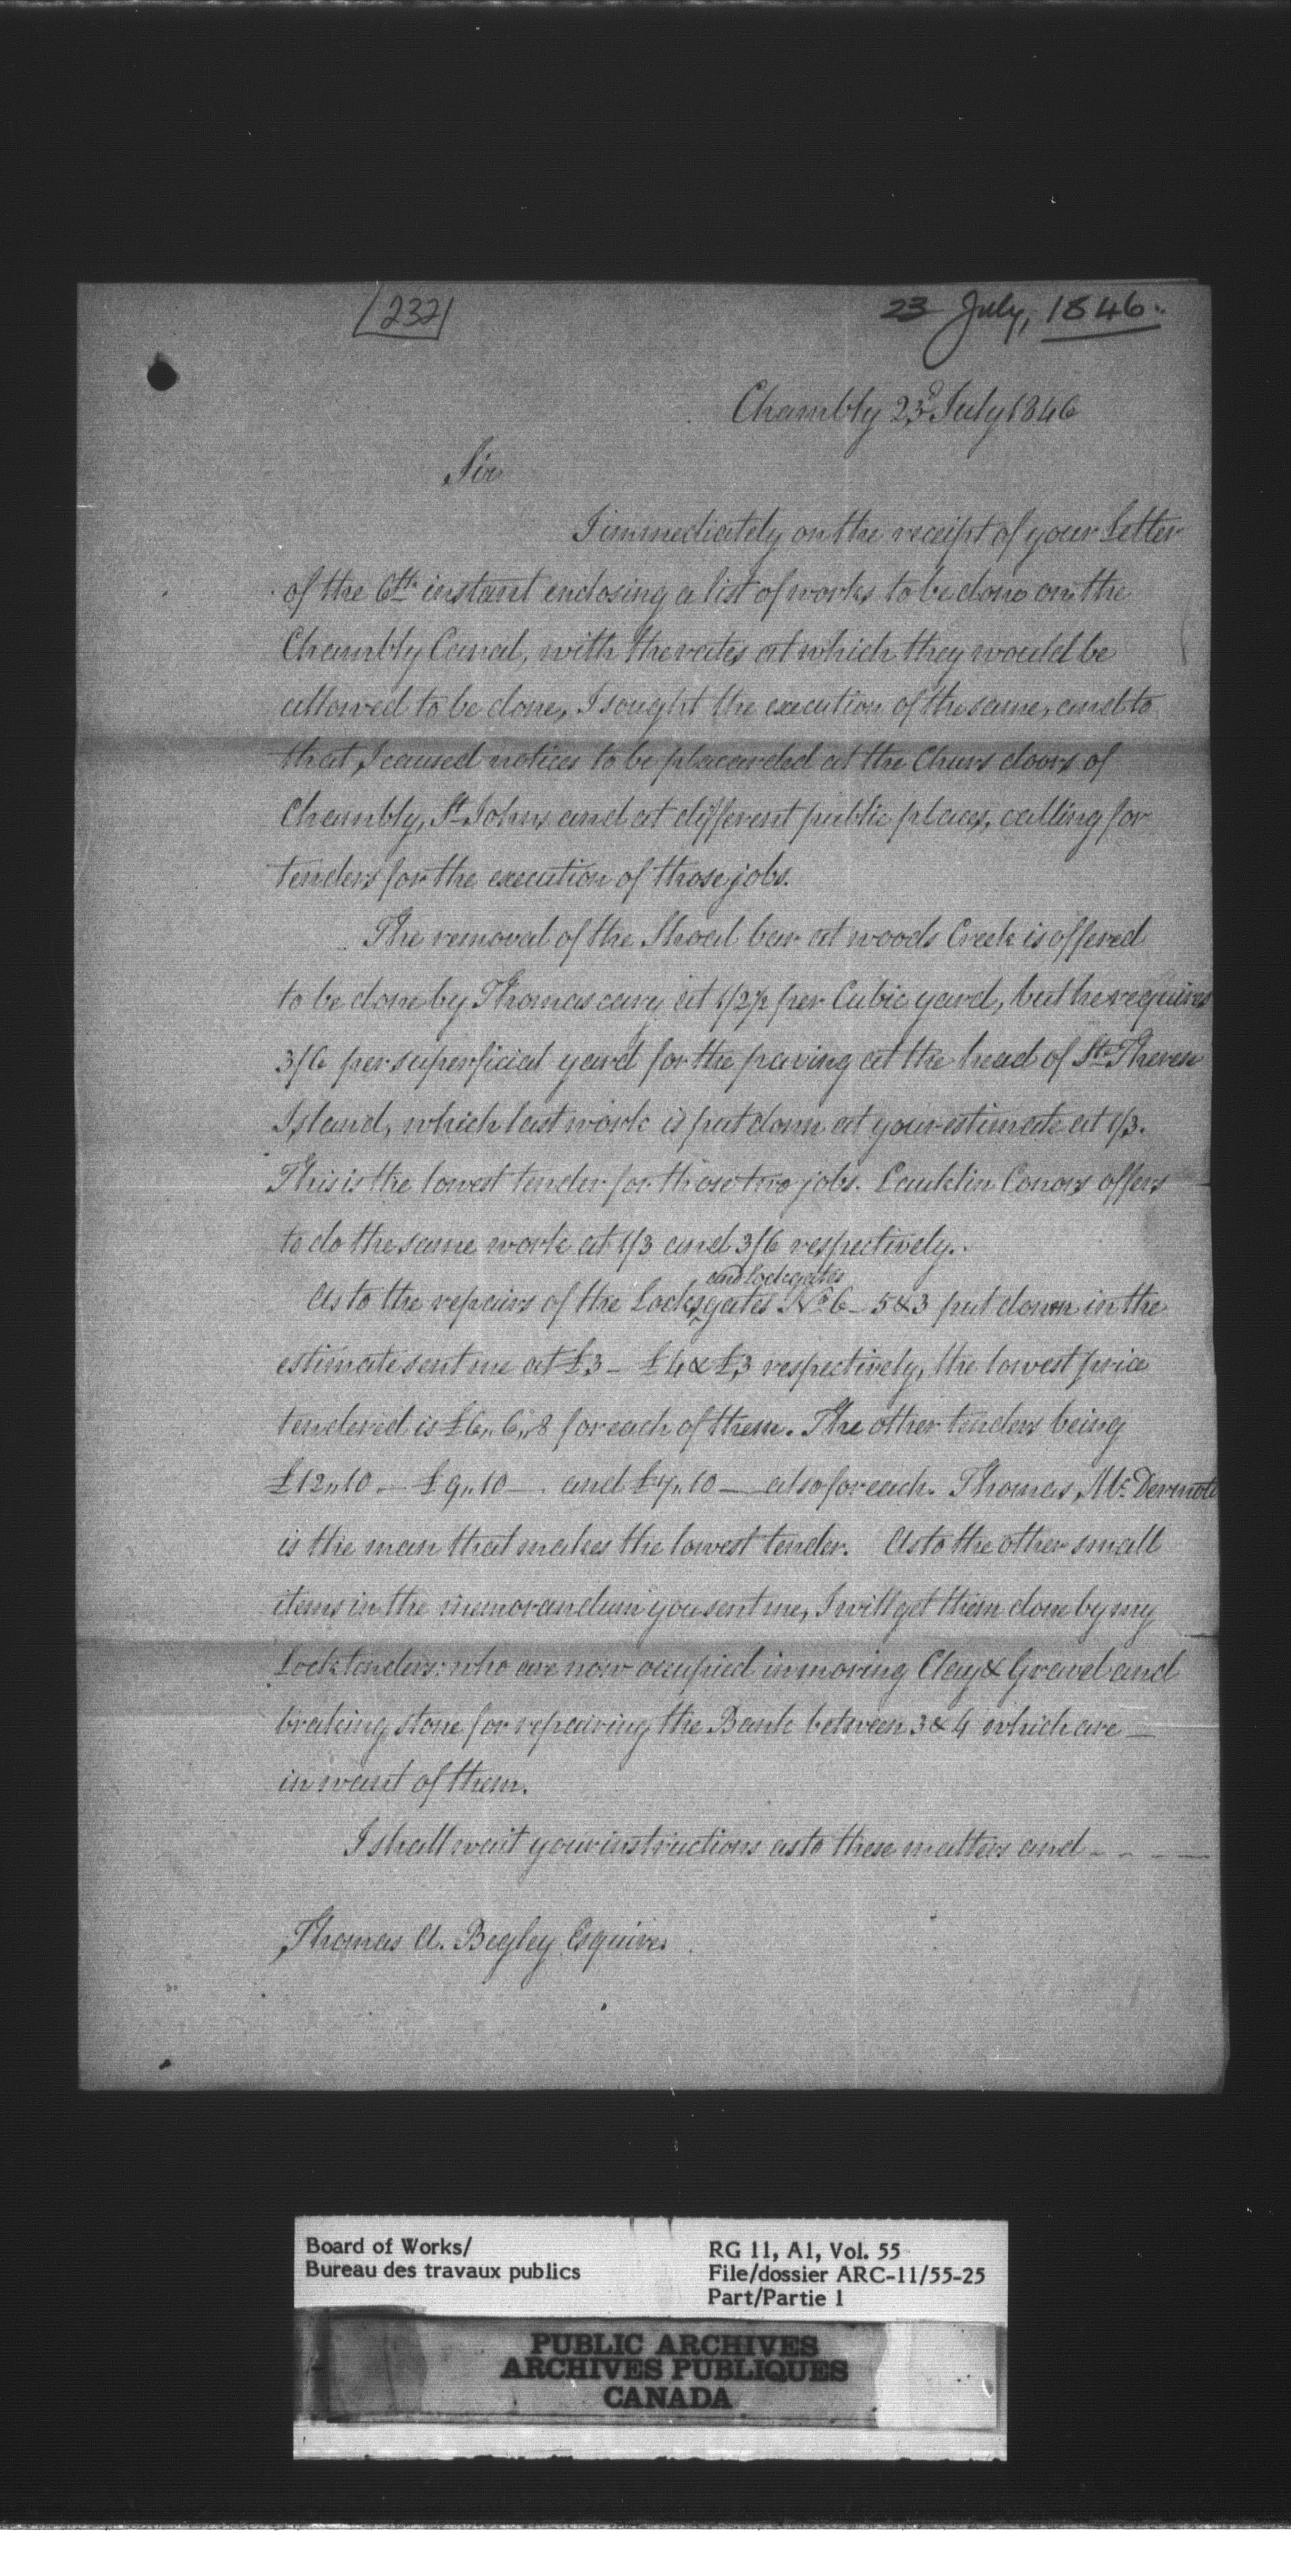 232
23 July, 1846.
Chambly 23d July 1846
Sir
Immediately on the receipt of your Letter
of the 6th instant enclosing a list of works to be done on the
Chambly Canal, with the rates at which they would be
allowed to be done, I sought the execution of the same, and to
that, I caused notices to be placarded at the Churs doors of
Chambly, St Johns and at different public places, calling for
tenders for the execution of those jobs.
The removal of the Shoal bar at woods Creek is offered
to be done by Thomas cary at 1/2½ per Cubic yard, but he requires
3/6 per superficial yard for the paving at the head of Ste Therese
Island, which last work is put down at your estimate at 1/3.
This is the lowest tender for those two jobs. Lauklin Conors offers
to do the same work at 1/3 and 3/6 respectively.
and lockgates
As to the repairs of the Locks, gates No 6 - 5 & 3 put down in the
estimate sent me at £3 - £4 & £3 respectively, the lowest price
tendered is £6,, 6,, 8 for each of them. The other tenders being
£12,, 10 — £9,, 10 — and £7,, 10 — also for each. Thomas Mc Dermott
is the man that makes the lowest tender. As to the other small
items in the memorandum you sent me, I will get them done by my
Locktenders who are now occupied in moving Clay & Gravel and
braking stone for repairing the Bank between 3 & 4 which are —
in want of them.
I shall wait your instructions as to these matters and - - - —
Thomas A. Begley Esquires
Board of Works/
Bureau des travaux publics
RG 11, A1, Vol. 55
File/dossier ARC-11/55-25
Part/Partie 1
PUBLIC ARCHIVES
ARCHIVES PUBLIQUES
CANADA